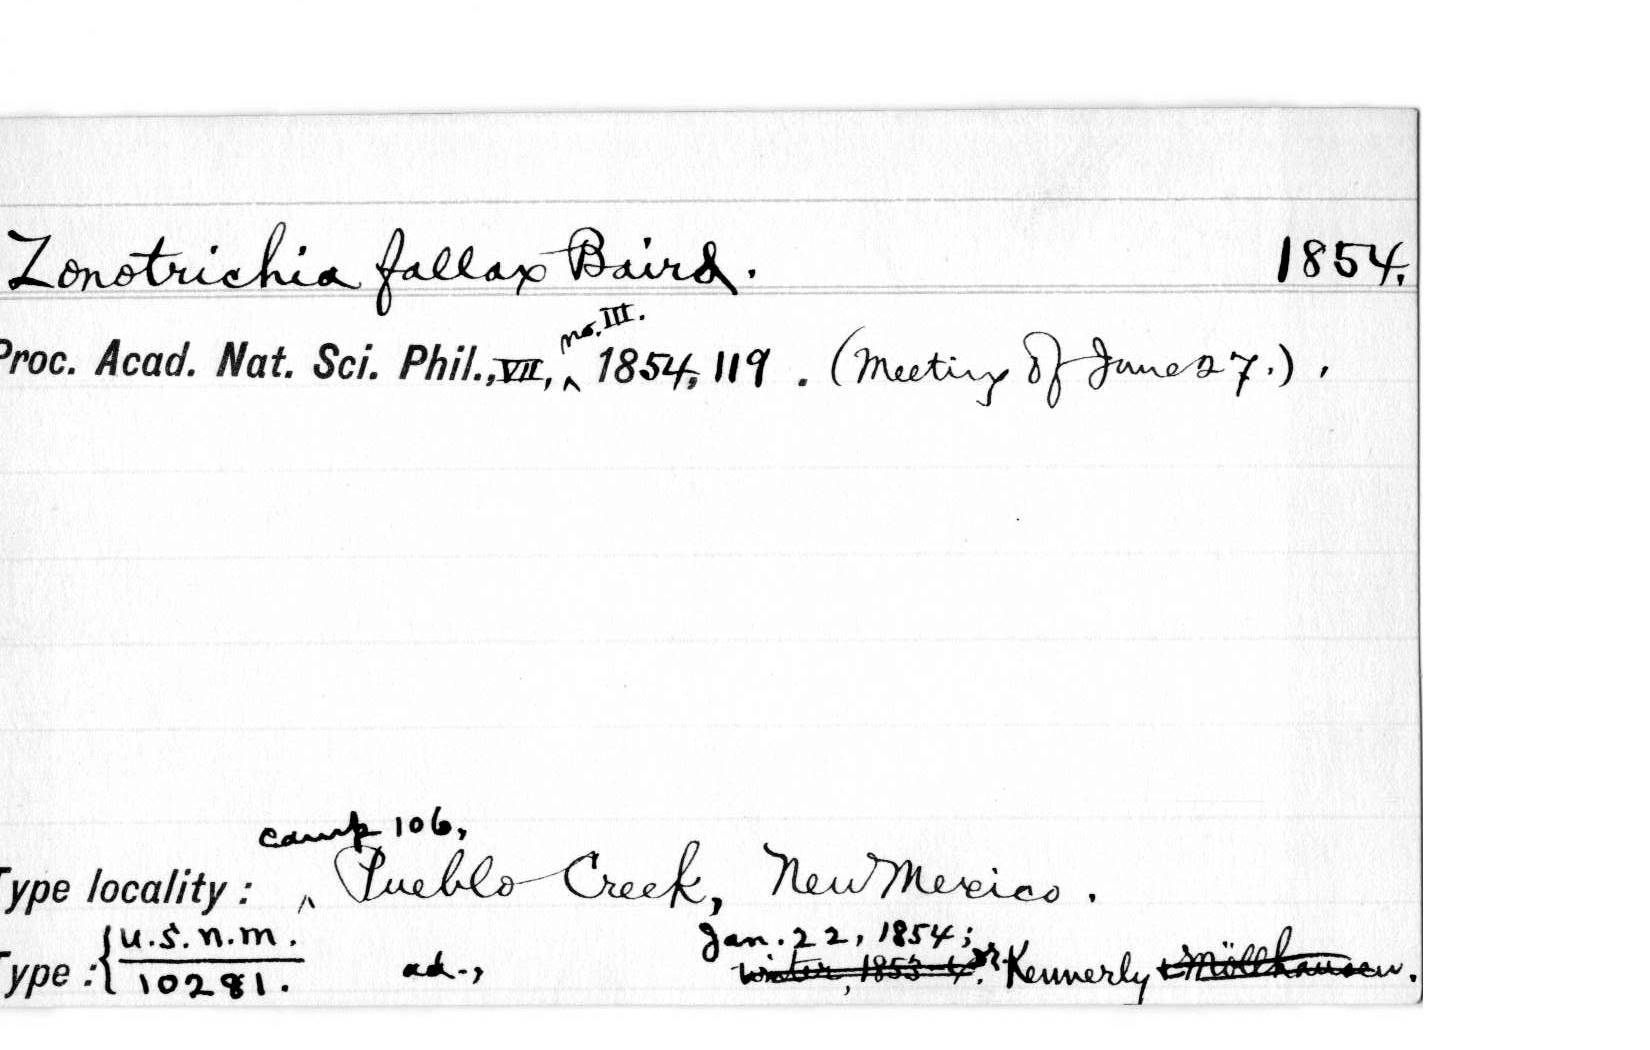 Zonotrichia fallax Baird. 1854.
no. III.
Proc. Acad. Nat. Sci. Phil., VII, ^ 1854, 119. (Meeting of June 27.).
camp 106,
Type locality: ^ Pueblo Creek, New Mexico.
U.S.N.M. Jan. 22, 1854;
Type: { 10281. ad., winter, 1853-4. Dr. Kennerly & Möllhausen.